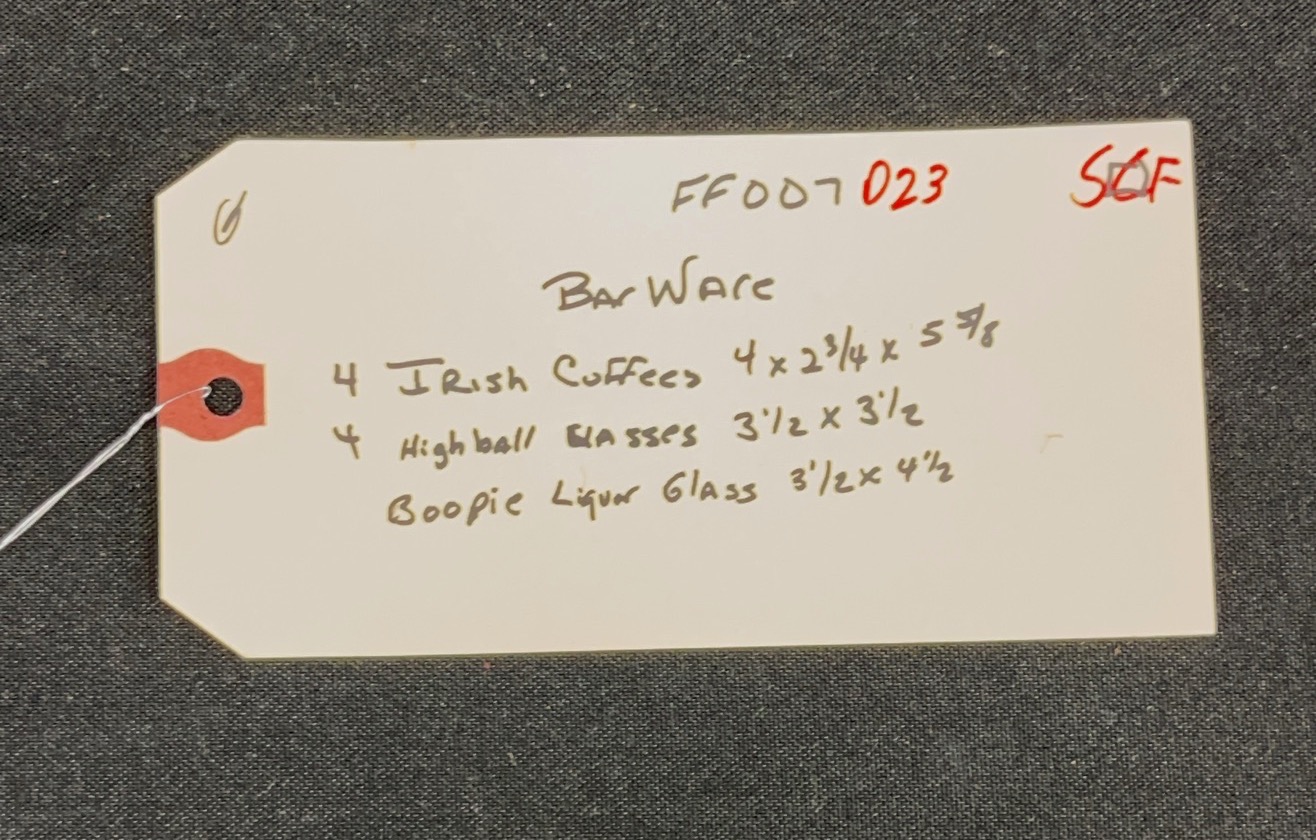 FF007 023 SCF
BarWare
4 IRish Coffees 4 x 2 3/4 x 5 5/8
4 Highball GlAsses 3 1/2 x 3 1/2
Boopie Liquor GlAss 3 1/2 x 4 1/2